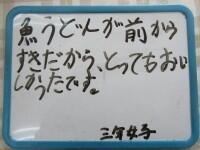 魚うどんが前から
すきだから、とってもおい
しかったです。
三年女子